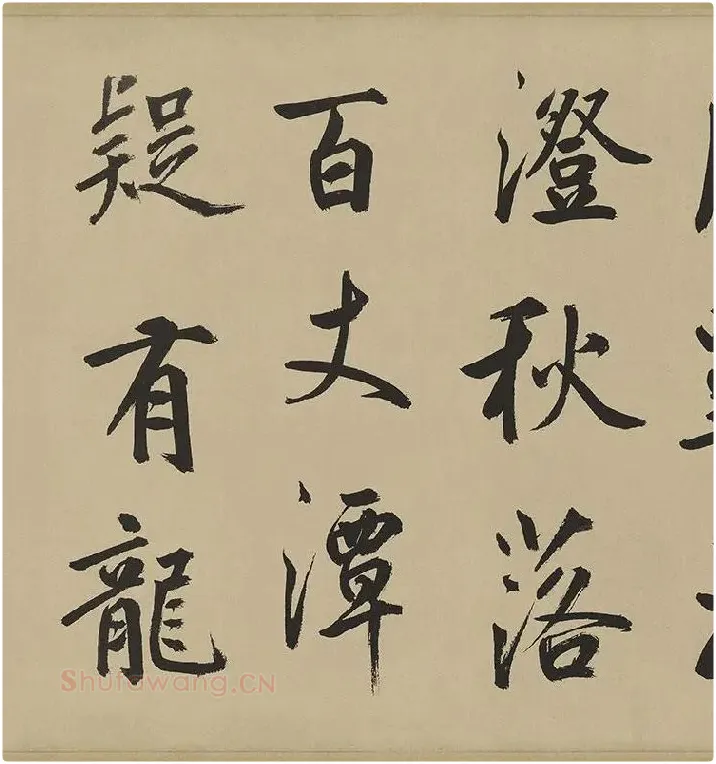 澄秋落
百丈潭
疑有龍
Shufawang.CN